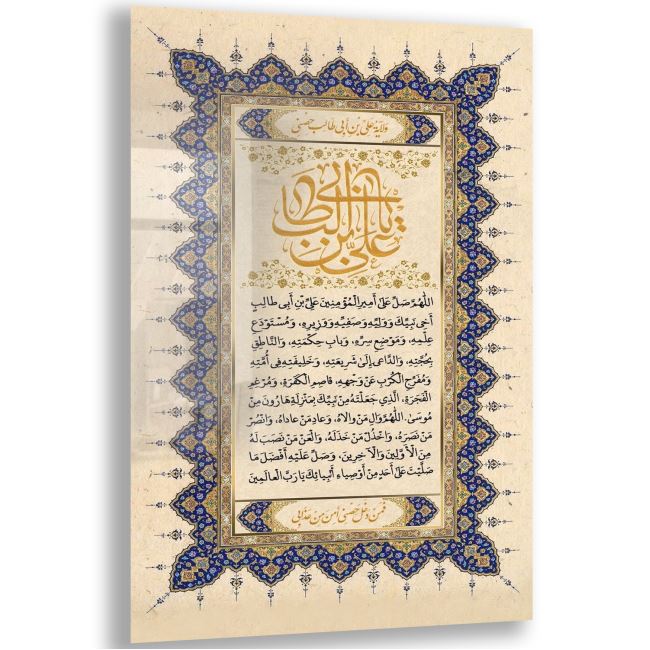 ولاية علي بن أبي طالب حصني
يا علي بن ابي طالب
اللهم صل على أمير المؤمنين علي بن أبي طالب
أخي نبيك ووليه وصفيه ووزيره، ومستودع
علمه، وموضع سره، وباب حكمته، والناطق
بحجته، والداعي إلى شريعته، وخليفته في أمته
ومفرج الكرب عن وجهه، قاصم الكفرة، ومرغم
الفجرة، الذي جعلته من نبيك بمنزلة هارون من
موسى. اللهم وال من والاه، وعاد من عاداه، وانصر
من نصره، واخذل من خذله، والعن من نصب له
من الأولين والآخرين، وصل عليه أفضل ما
صليت على أحد من أوصياء أنبيائك يا رب العالمين
فمن دخل حصني أمن من عذابي